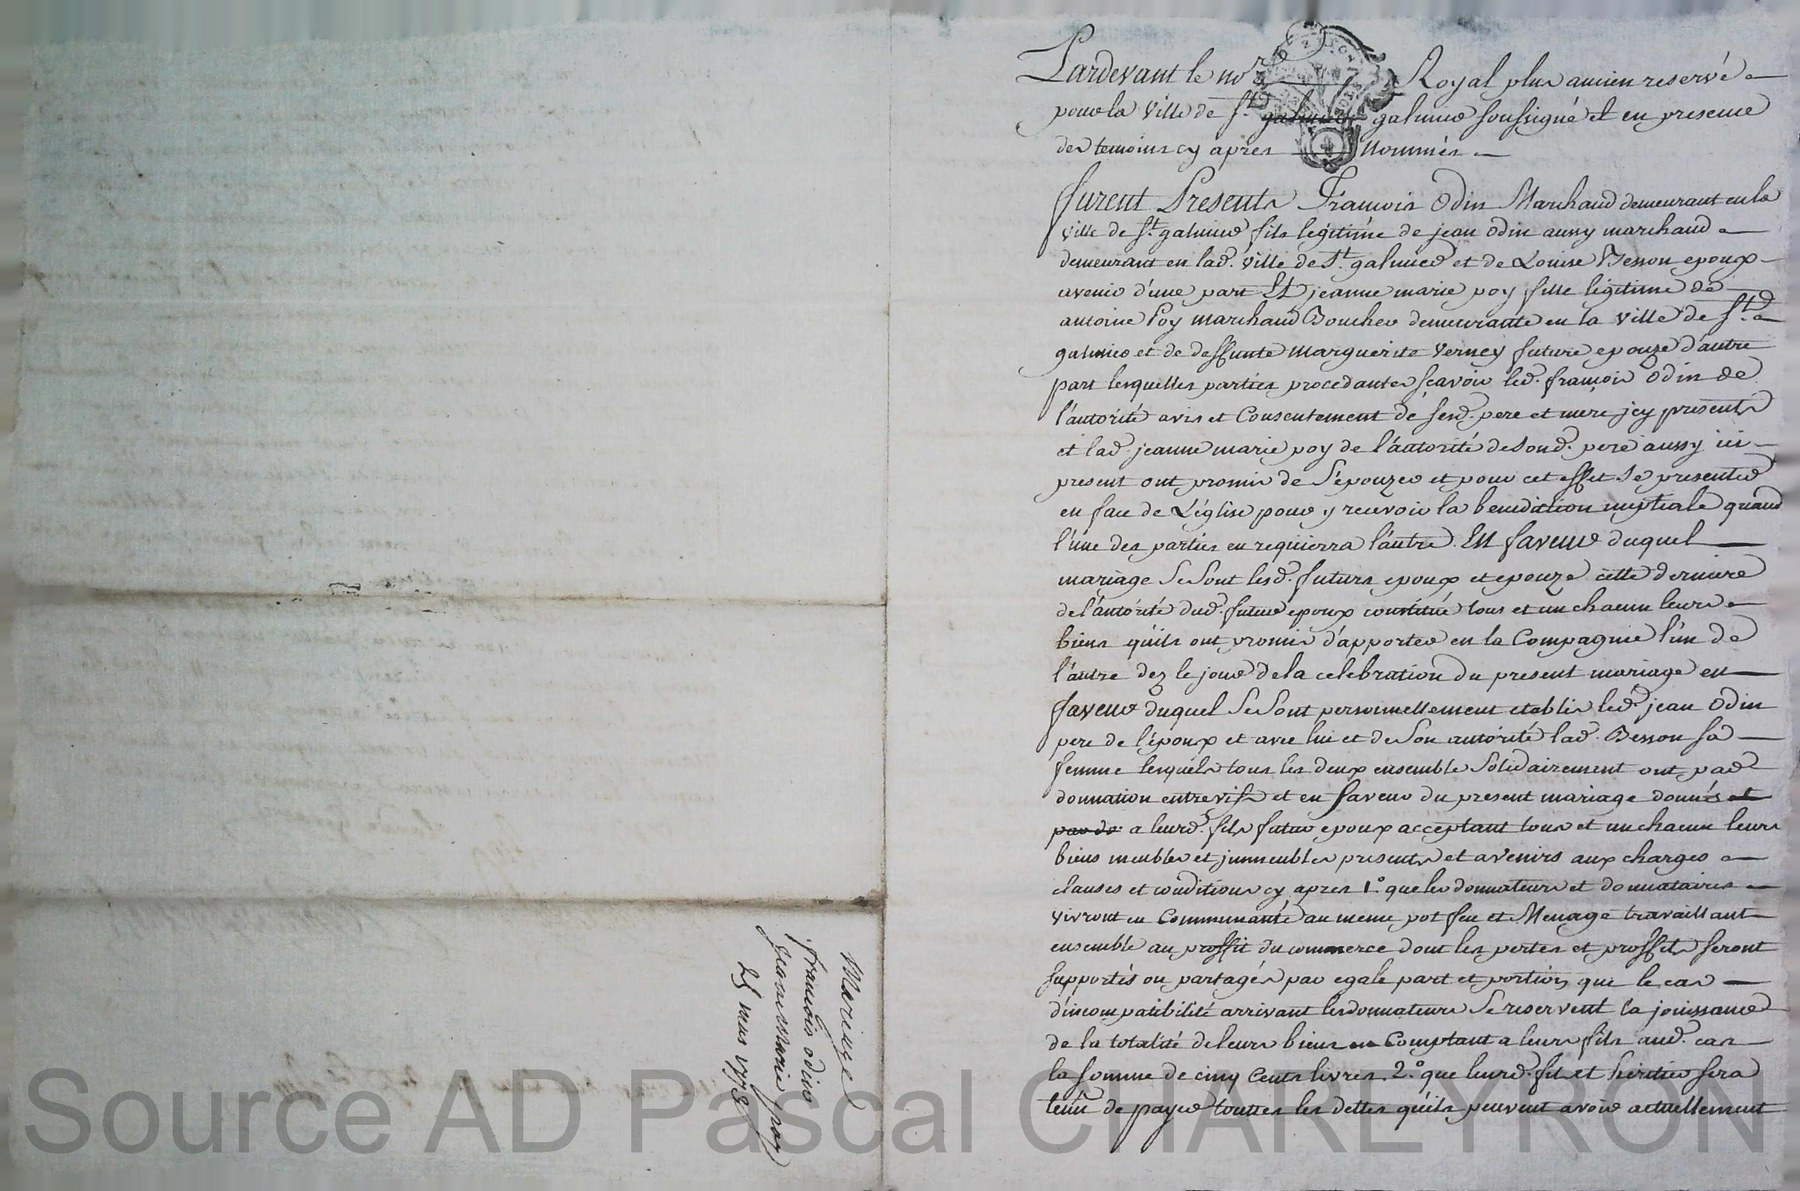 Mariage
francois odin
Jeanmarie poy
25 mars 1773
Pardevant le nore Royal plus ancien reservé
pour la ville de St. galmier galmier soussigné et en presence
des temoins cy apres nommés
furent Presents Francois Odin Marchand demeurant en la
ville de St. galmier fils legitime de jean Odin aussy marchand
demeurant en lad. ville de St. galmier et de Louise Besson epoux
avenir d'une part Et jeanne marie poy fille legitime de
antoine Poy marchand Boucher demeurante en la ville de St.
galmier et de deffunte Marguerite Verney future epouze d'autre
part lesquelles parties procedantes scavoir led. francois Odin de
l'autorité avis et Consentement de sesd. pere et mere jcy presents
et lad. jeanne marie poy de l'autorité de sond. pere aussy ici
present ont promis de s'épouzer et pour cet effet se presenter
en face de L'église pour y recevoir la benediction nuptiale quand
l'une des parties en requierra l'autre. En faveur duquel
mariage se sont lesd. futurs epoux et epouze cette derniere
de l'autorité dud. futur epoux constitué tous et un chacun leurs
biens qu'ils ont promis d'apporter en la Compagnie l'un de
l'autre dez le jour de la celebration du present mariage en
faveur duquel se sont personnellement etablis led. jean Odin
pere de l'époux et avec lui et de son autorité lad. Besson sa
femme lesquels tous les deux ensemble solidairement ont par
donnation entrevifs et en faveur du present mariage donnés et
par de a leurd. fils futur epoux acceptant tous et un chacun leurs
biens meubles et jmmeubles presents et avenirs aux charges
clauses et conditions cy apres 1.° que les donnateurs et donnataires
vivront en Communauté au meme pot feu et Menage travaillant
ensemble au proffit du commerce dont les pertes et proffits seront
supportés ou partagés par egale part et portion que le cas
d'incompatibilité arrivant les donnateurs se reservent la jouissance
de la totalité de leurs biens en Comptant a leurs fils aud. cas
la somme de cinq Cents livres. 2.° que leurd. fils et heritier sera
tenu de payer touttes les dettes qu'ils peuvent avoir actuellement
Source AD Pascal CHAREYRON